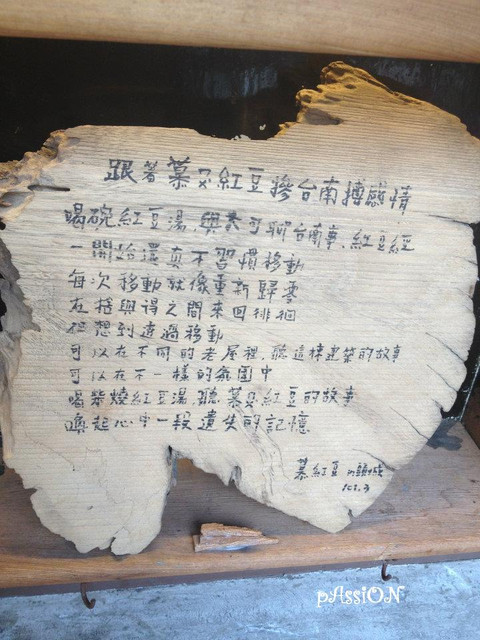 跟著慕及紅豆摻台南搏感情
喝碗紅豆湯.與 可聊台南事.紅豆經
一開始還真不習慣移動
每次移動就像重新歸零
在捨與得之間來回徘徊
但想到透過移動
可以在不同的老屋裡.聽這棟建築的故事
可以在不一樣的氛圍中
喝柴燒紅豆湯.聽慕及紅豆的故事
喚起心中一段遺失的記憶.
慕紅豆 頭城
103.3
pAssiON